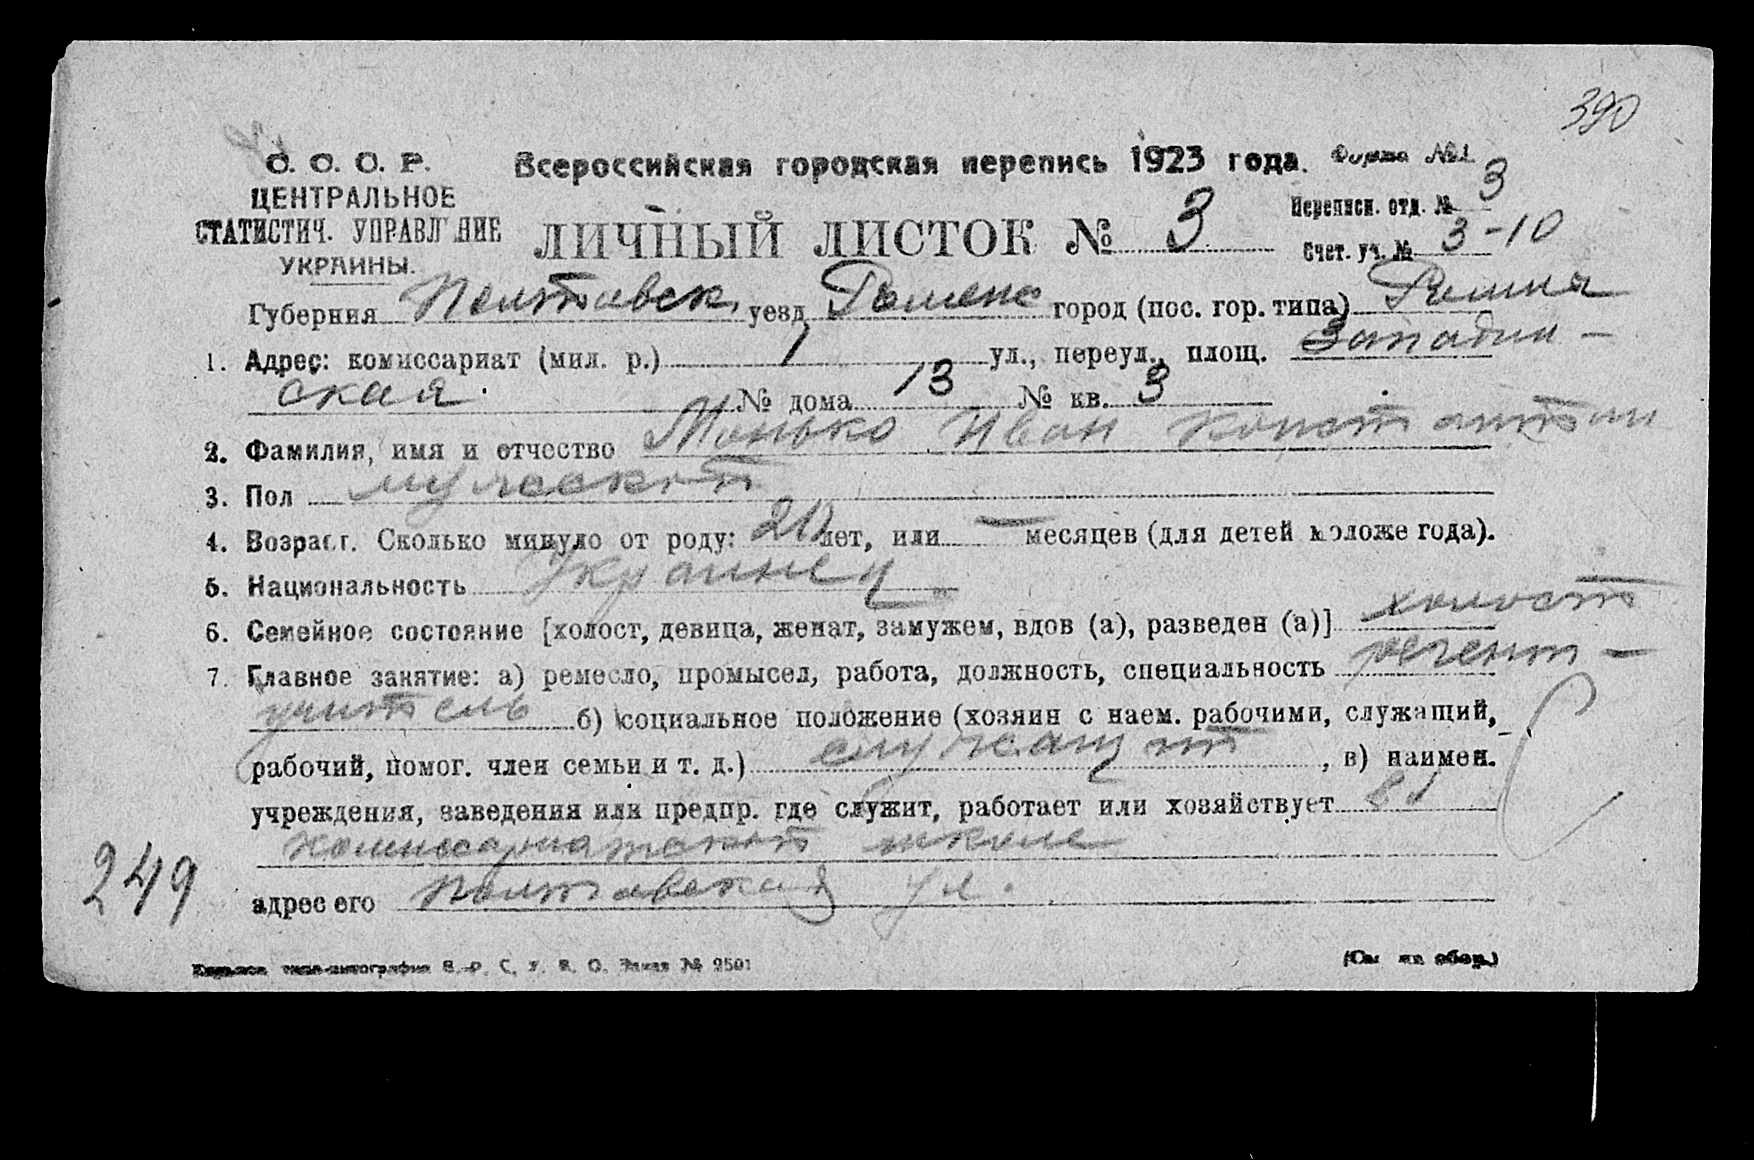 390
С. С. С. Р. Всероссийская городская перепись 1923 года. Форма №1
ЦЕНТРАЛЬНОЕ
СТАТИСТИЧ. УПРАВЛ НИЕ
УКРАИНЫ.
ЛИЧНЫЙ ЛИСТОК № 3
Переписн. отд. № 3
Счет. уч. № 3-10
Губерния Полтавск. уезд Роменс город (пос. гор. типа) Ромны
1. Адрес: комиссариат (мил. р.) 1 ул., переул., площ. Западин-
ская. № дома 13 № кв. 3
2. Фамилия, имя и отчество Монько Иван Константин
3. Пол мужской
4. Возраст. Сколько минуло от роду: 20 лет, или — месяцев (для детей моложе года).
5. Национальность Украинец
6. Семейное состояние [холост, девица, женат, замужем, вдов (а), разведен (а)] холост
7. Главное занятие: а) ремесло, промысел, работа, должность, специальность регент-
учитель б) социальное положение (хозяин с наем. рабочими, служащий,
рабочий, помог. член семьи и т. д.) служащий, в) наимен.
учреждения, заведения или предпр. где служит, работает или хозяйствует
Комиссариатской школе
адрес его Полтавская ул.
249
типо-литография Заказ № 2501
(См на обор.)